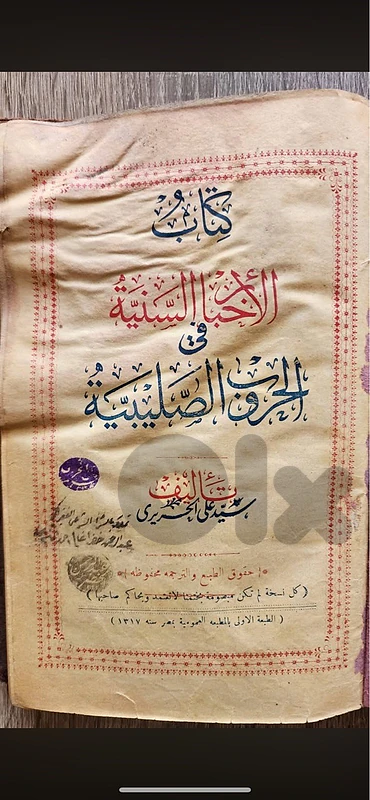 كتاب
الأخبار السنية
في
الحروب الصليبية
تأليف
سيد علي الحريري
حقوق الطبع والترجمه محفوظه
( كل نسخة لم تكن مختومة بختمنا لا تعتمد ويحاكم صاحبها )
( الطبعة الاولى بالمطبعه العموميه بمصر سنه ١٣١٧ )
olx